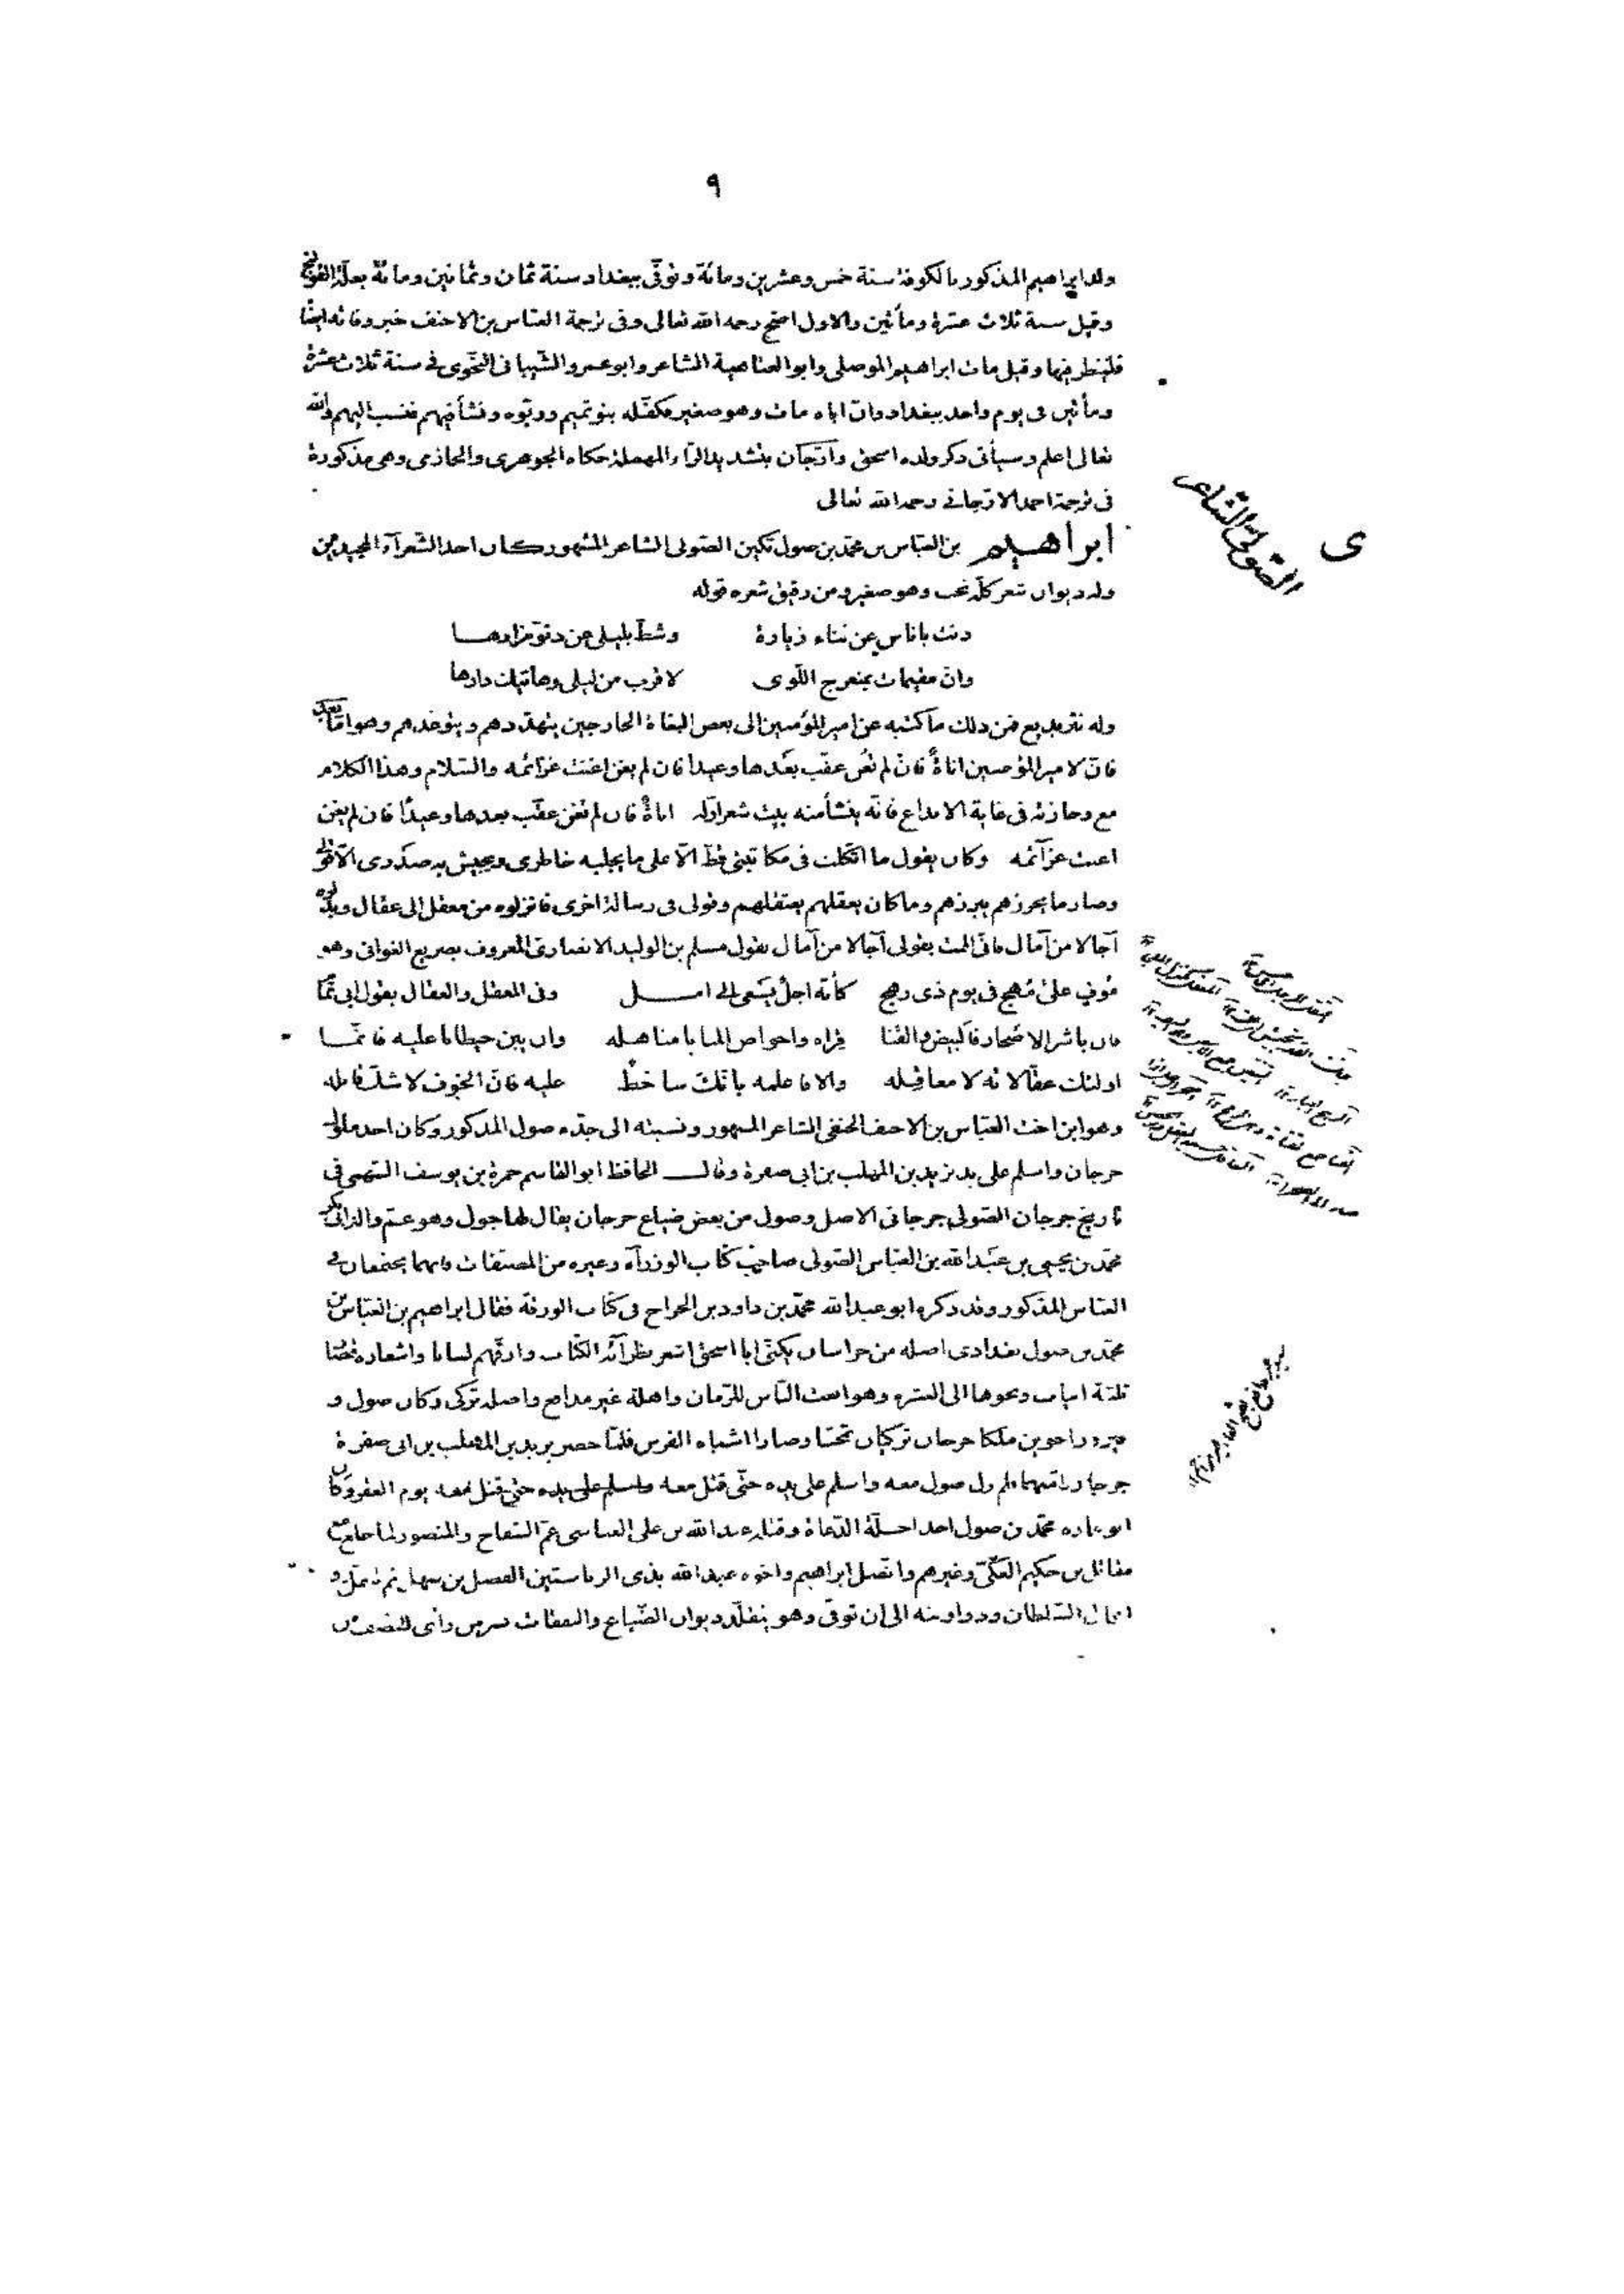 ٩
ولد ابراهيم المذكور بالكوفة سنة خمس وعشرين ومائة وتوفّى ببغداد سنة ثمان وثمانين ومائة بعلّة القولنج
وقيل سنة ثلاث عشرة ومأتين والاول اصح رحمه الله تعالى وفى ترجمة العباس بن الاحنف خبر وفاته ايضًا
فلينظر فيها وقيل مات ابراهيم الموصلى وابو العتاهية الشاعر وابو عمرو الشيبانى النحوى فى سنة ثلاث عشرة
ومأتين فى يوم واحد ببغداد وان اباه مات وهو صغير فكفله بنو تميم وربّوه ونشأ فيهم فنسب اليهم والله
تعالى اعلم وسيأتى ذكر ولده اسحق وارّجان بتشديد الراء المهملة حكاه الجوهرى والحازمى وهى مذكورة
فى ترجمة احمد الارّجانى رحمه الله تعالى
ابراهيم بن العبّاس بن محمّد بن صول تكين الصّولى الشاعر المشهور كان احد الشّعرآء المجيدين
الصّولى الشّاعر
ى
وله ديوان شعر كلّه نخب وهو صغير ومن رقيق شعره قوله
دنت باناس عن تناء زيارة وشطّ بليلى عن دنوّ مزارهـا
وانّ مقيمات بمنعرج اللّوى لاقرب من ليلى وهاتيك دارها
وله نثر بديع فمن ذلك ما كتبه عن امير المؤمنين الى بعض البغاة الخارجين يتهدّدهم ويتوعّدهم وهو امّا بعد
فانّ لامير المؤمنين اناةً فان لم تغن عقّب بعدها وعيدا فان لم يغن اغنت عزائمه والسّلام وهذا الكلام
مع وجازته فى غاية الابداع فانّه ينشأ منه بيت شعر اوّله اناةٌ فان لم تغن عقّب بعدها وعيدًا فان لم يغن
اغنت عزآئمه وكان يقول ما اتّكلت فى مكاتبتى قطّ الّا على ما يجلبه خاطرى ويجيش به صدرى الّا قولى
وصار ما يحرزهم يبرزهم وما كان يعقلهم يعتقلهم وقولى فى رسالة اخرى فانزلوه من معقل الى عقال وبدّلوه
آجالا من آمال فانّى الممت بقولى آجالا من آمال بقول مسلم بن الوليد الانصارى المعروف بصريع الغوانى وهو
موفٍ على مُهجٍ فى يوم ذى رهجٍ كأنّه اجلٌ يسعى الى امـل وفى المعقل والعقال بقول ابى تمّا
فان باشر الاصحار فالبيض والقنا قراه واحواض المنايا مناهله وان يبن حيطانا عليه فانّمـا
اولئك عقّالاته لا معاقله والا فاعلمه بانّك ساخطٌ عليه فانّ الخوف لا شكّ قاتله
وهو ابن اخت العبّاس بن الاحنف الحنفى الشاعر المشهور ونسبته الى جدّه صول المذكور وكان احد ملوك
جرجان واسلم على يد يزيد بن المهلب بن ابى صفرة وقال الحافظ ابو القاسم حمزة بن يوسف السّهمى فى
تاريخ جرجان الصّولى جرجانى الاصل وصول من بعض ضياع جرجان يقال لها جول وهو عمّ والد ابى بكر
محمّد بن يحيى بن عبد الله بن العبّاس الصّولى صاحب كتاب الوزرآء وغيره من المصنّفات فانهما يجتمعان فى
العبّاس المذكور وقد ذكره ابو عبد الله محمّد بن داود بن الجراح فى كتاب الورقة فقال ابراهيم بن العبّاس بن
محمّد بن صول بغدادى اصله من خراسان يكنّى ابا اسحق اشعر نظرآئه الكتّاب وارقّهم لسانا واشعاره قصار
ثلثة ابيات ونحوها الى العشرة وهو انعت النّاس للزّمان واهله غير مدافع واصله تركى وكان صول و
فيروز اخوين ملكا جرجان تركيّان تمجّسا وصارا اشباه الفرس فلمّا حضر يزيد بن المهلب بن ابى صفرة
جرجان امّنهما فلم يزل صول معه واسلم على يده حتّى قتل معه واسلم على يده حتّى قتل معه يوم العقر وكان
ابو عماره محمّد بن صول احد اجلّة الدّعاة وقتله عبد الله بن على العباسى عمّ السّفاح والمنصور لمّا خلع مع
مقاتل بن حكيم العكّىّ وغيرهم واتّصل ابراهيم واخوه عبد الله بذى الرياستين الفضل بن سهل ثم تنقّل فى
اعمال السّلطان ودواوينه الى ان توفّى وهو يتقلّد ديوان الضّياع والنفقات بسرّ من رأى للنصف من